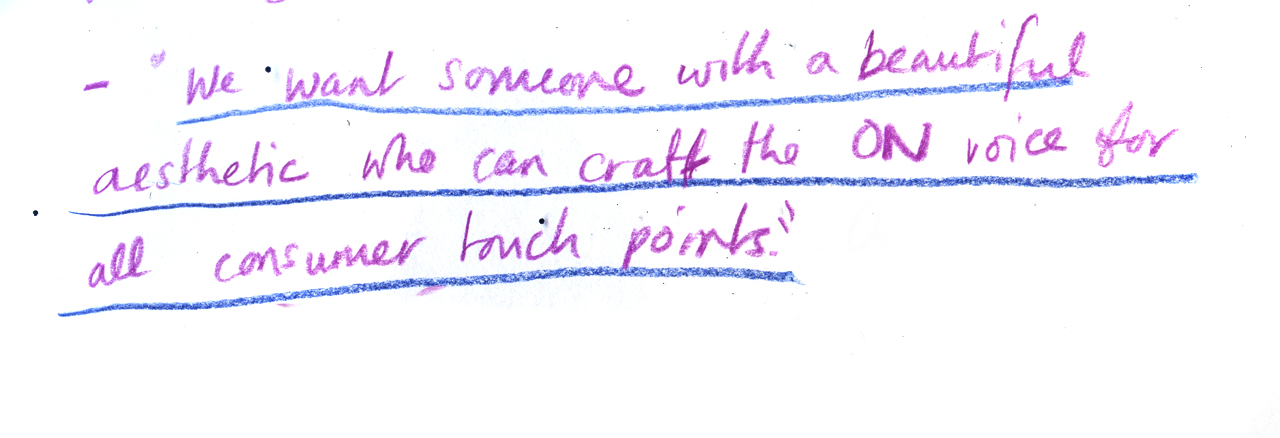 - "We want someone with a beautiful
aesthetic who can craft the ON voice for
all consumer touch points."